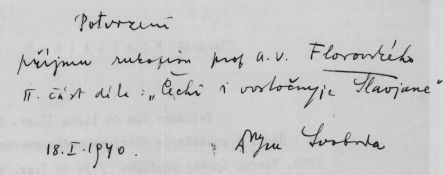 Potvrzení
příjmu rukopisu prof. A. V. Florovského
II. část díla: „Čechi i vostočnyje Slavjane“
18.I.1940. Svoboda